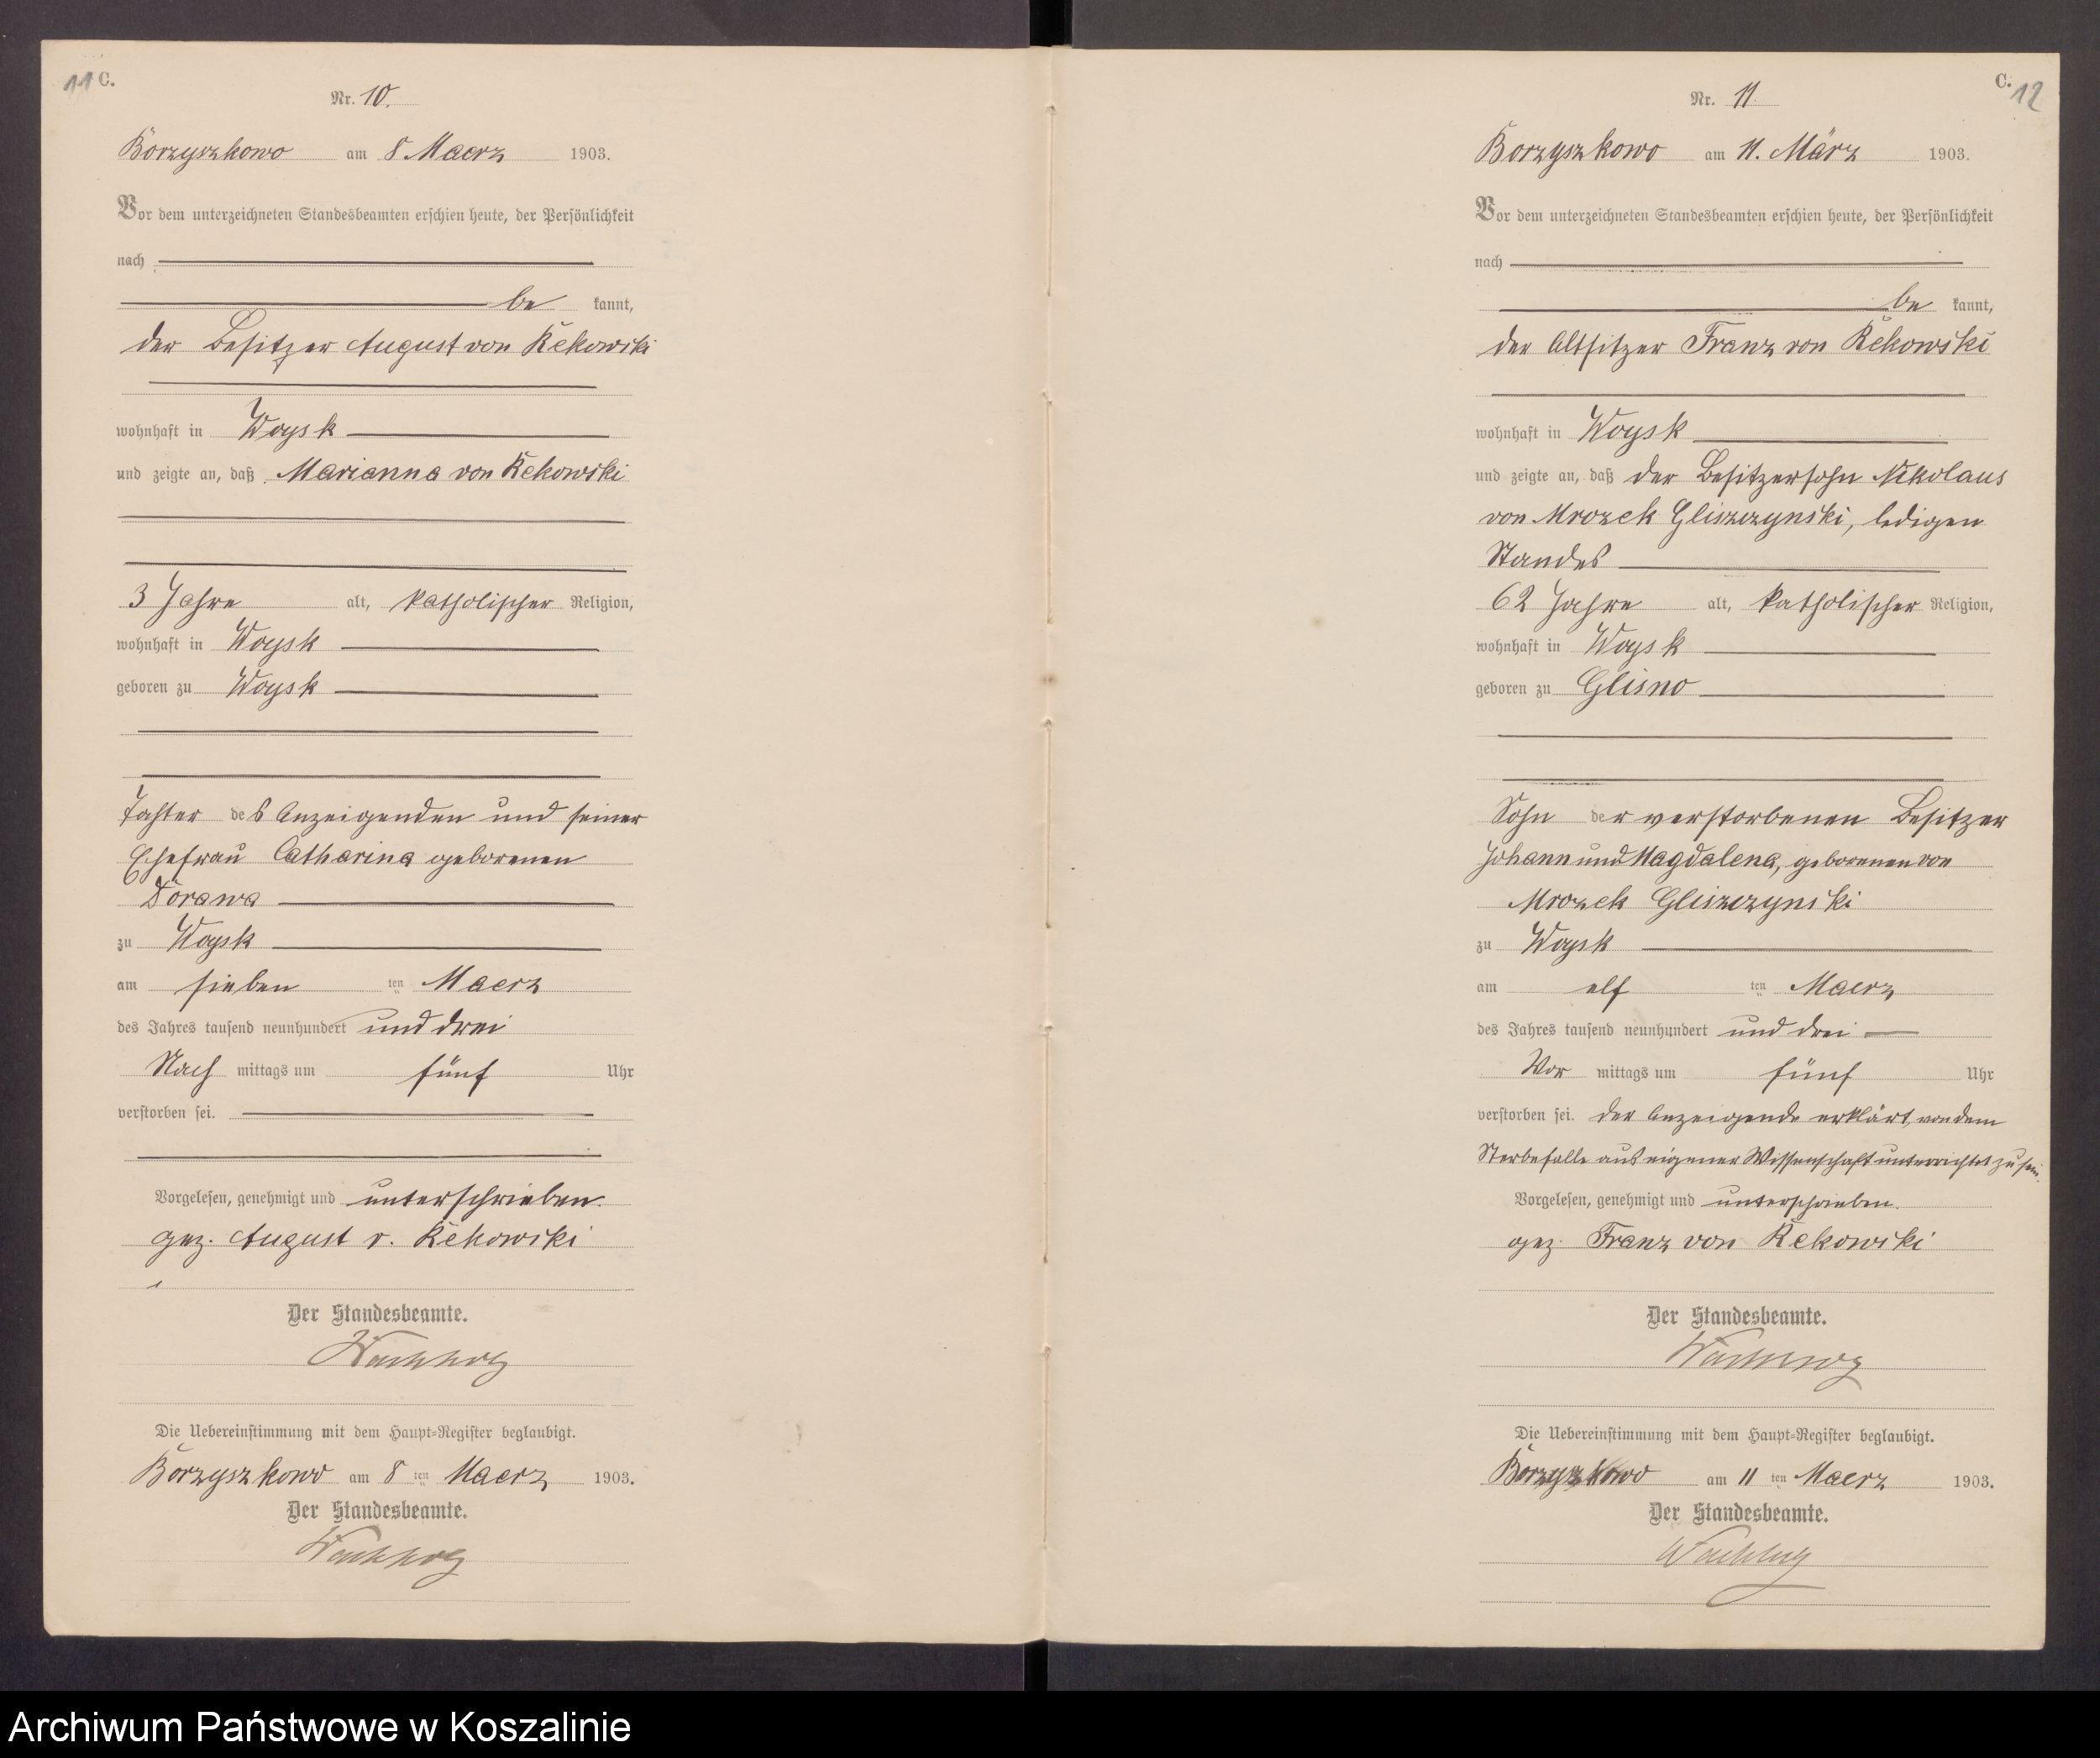 11 C.
Nr. 10.
Borzyszkowo am 8 Maerz 1903.
Vor dem unterzeichneten Standesbeamten erschien heute, der Persönlichkeit
nach
be kannt,
der Besitzer August von Rekowski
wohnhaft in Woysk
und zeigte an, daß Marianna von Rekowski
3 Jahre alt, katholischer Religion,
wohnhaft in Woysk
geboren zu Woysk
Tochter des Anzeigenden und seiner
Ehefrau Catharina geborenen
Dorawa
zu Woysk
am sieben ten Maerz
des Jahres tausend neunhundert und drei
Nach mittags um fünf Uhr
verstorben sei.
Vorgelesen, genehmigt und unterschrieben.
gez. August v. Rekowski
Der Standesbeamte.
Die Uebereinstimmung mit dem Haupt-Register beglaubigt.
Borzyszkowo am 8 ten Maerz 1903.
Der Standesbeamte.
C. 12
Nr. 11.
Borzyszkowo am 11. März 1903.
Vor dem unterzeichneten Standesbeamten erschien heute, der Persönlichkeit
nach
be kannt,
der Altsitzer Franz von Rekowski
wohnhaft in Woysk
und zeigte an, daß der Besitzersohn Nikolaus
von Mrozek Gliszczynski, ledigen
Standes
62 Jahre alt, katholischer Religion,
wohnhaft in Woysk
geboren zu Glisno
Sohn der verstorbenen Besitzer
Johann und Magdalena, geborenen von
Mrozek Gliszczynski
zu Woysk
am elf ten Maerz
des Jahres tausend neunhundert und drei
Vor mittags um fünf Uhr
verstorben sei. Der Anzeigende erklärt, von dem
Sterbefalle aus eigener Wissenschaft unterrichtet zu sein.
Vorgelesen, genehmigt und unterschrieben.
gez. Franz von Rekowski
Der Standesbeamte.
Die Uebereinstimmung mit dem Haupt-Register beglaubigt.
Borzyszkowo am 11 ten Maerz 1903.
Der Standesbeamte.
Archiwum Państwowe w Koszalinie